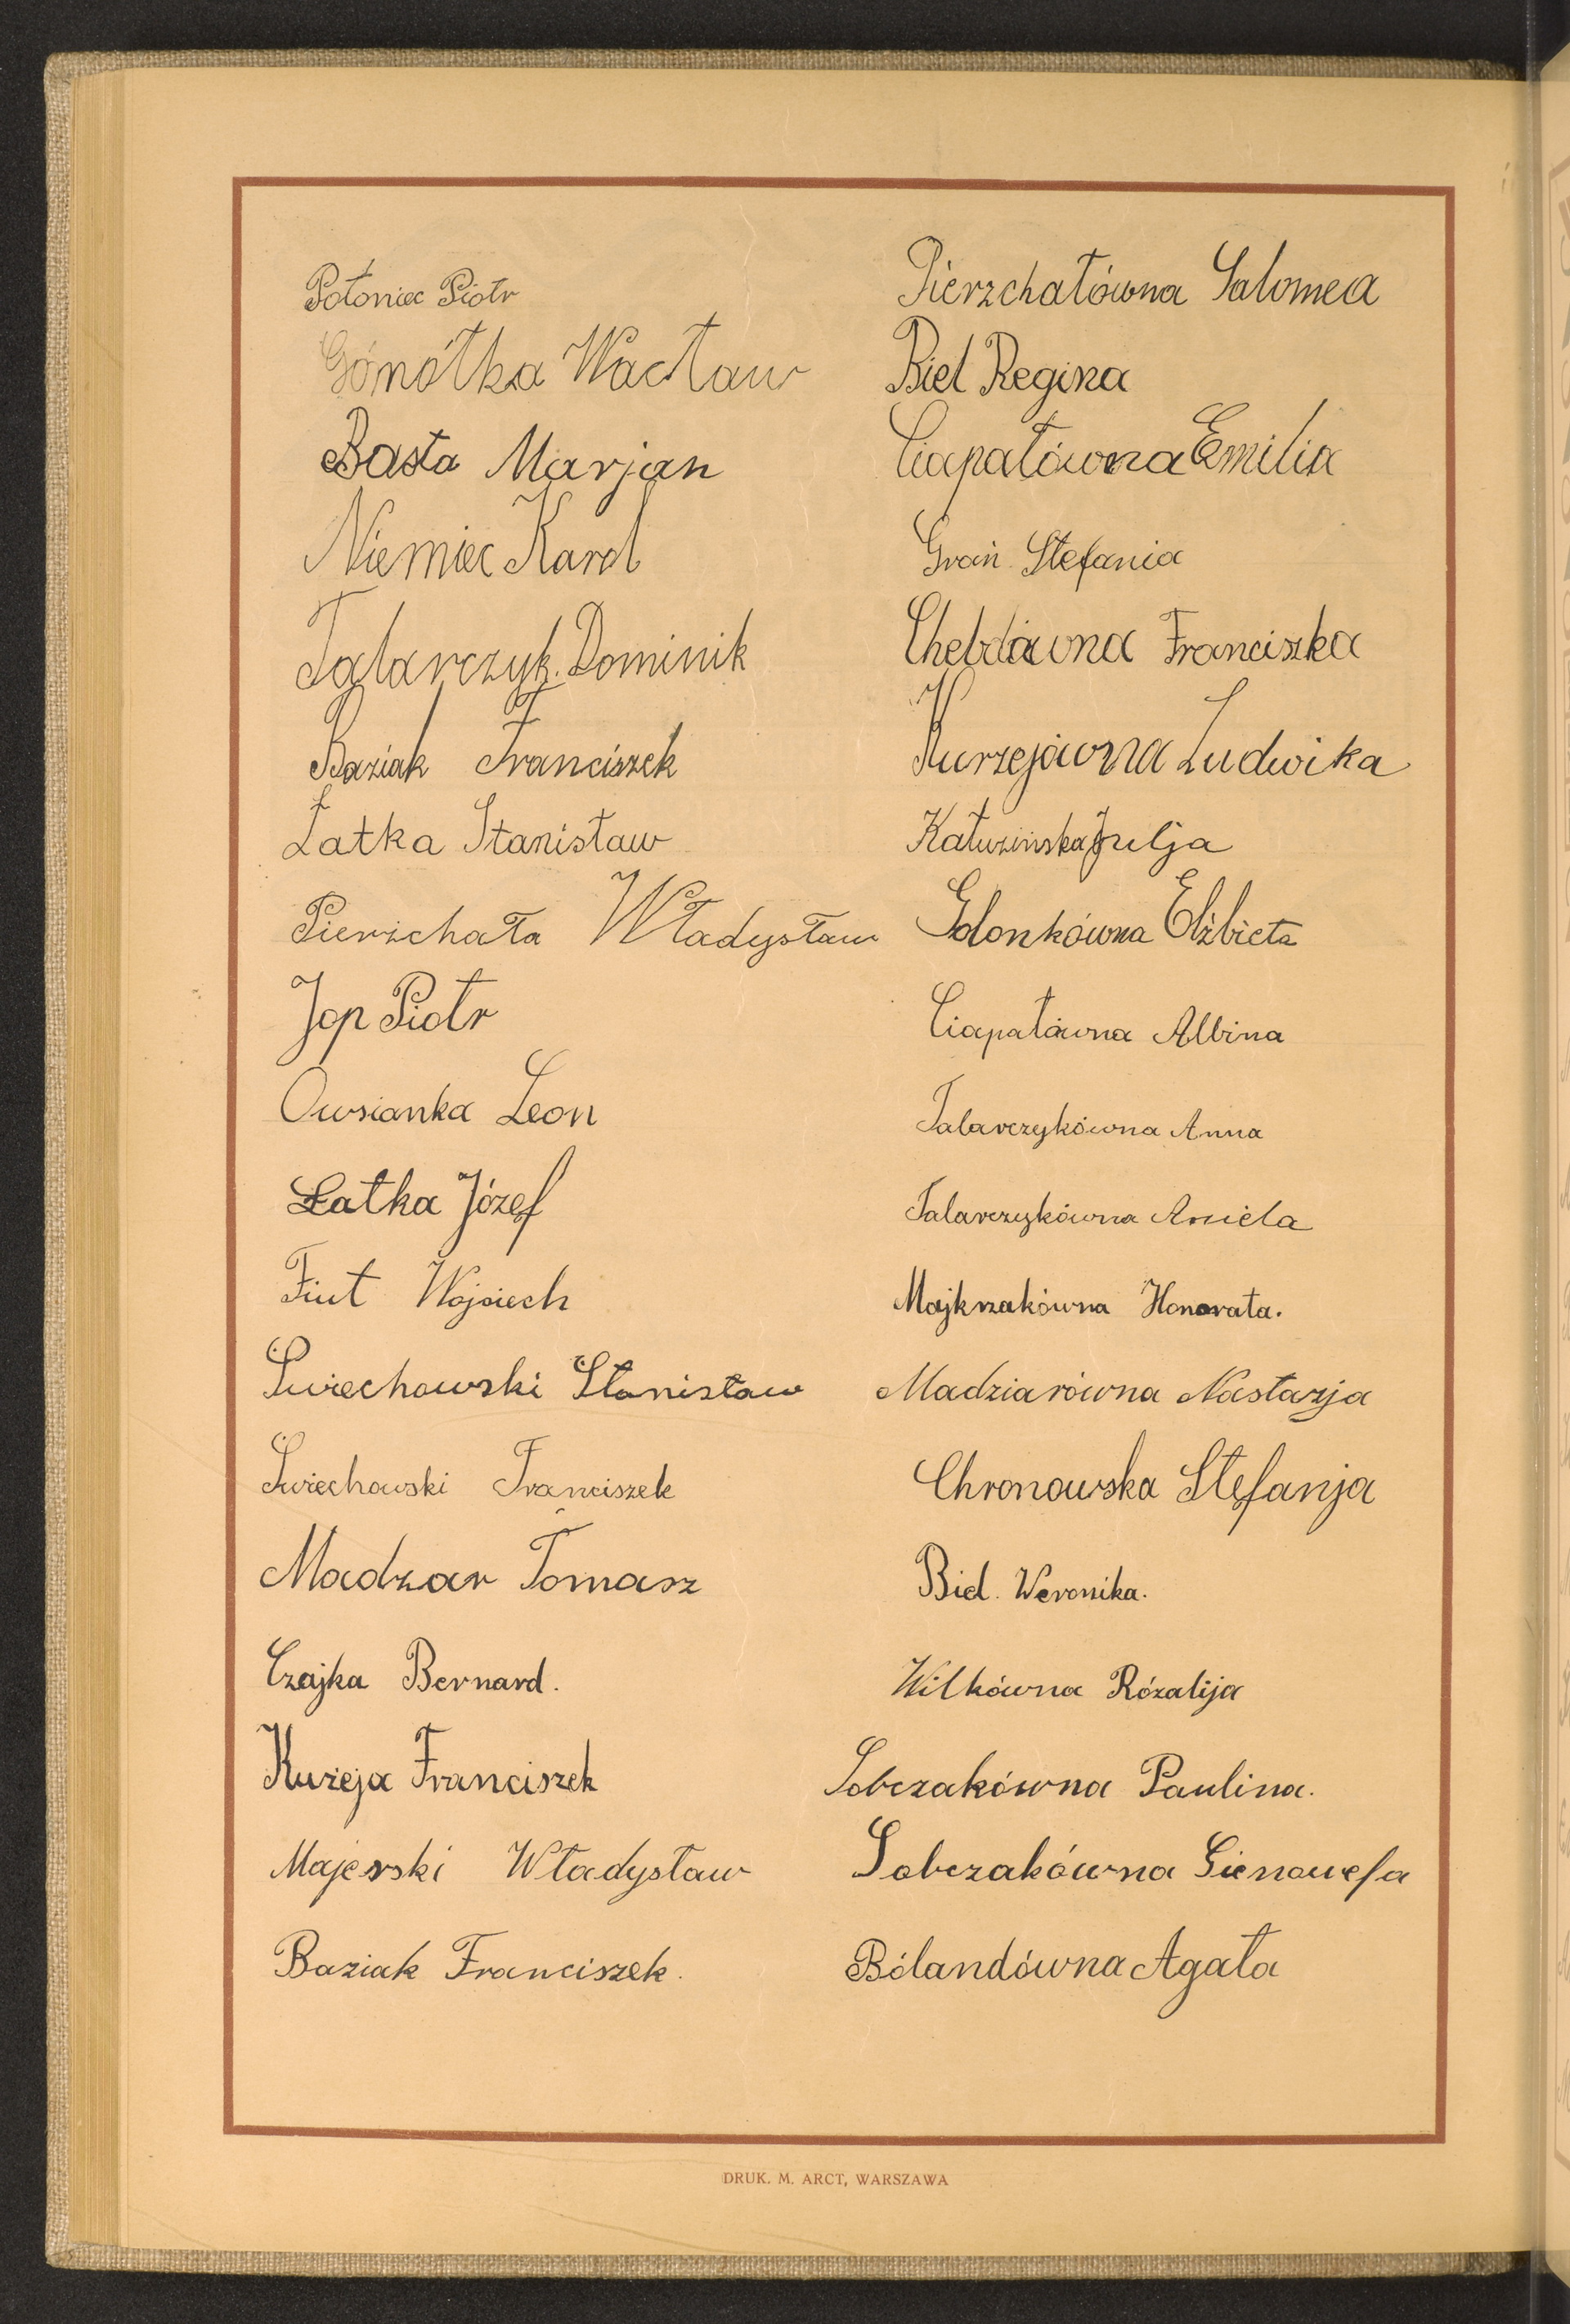 Połoniec Piotr
Gómółka Wacław
Basta Marjan
Niemiec Karol
Talarczyk. Dominik
Baziak Franciszek
Łatka Stanisław
Pierzchała Władysław
Jop Piotr
Owsianka Leon
Łatka Józef
Fiut Wojciech
Świechowski Stanisław
Świechowski Franciszek
Madzar Tomasz
Czajka Bernard.
Kuzeja Franciszek
Majerski Władysław
Baziak Franciszek.
Pierzchałówna Salomea
Biel Regina
Ciapałówna Emilia
Grań Stefania
Chebdówna Franciszka
Kurzejówna Ludwika
Kałuzińska Julja
Golonkówna Elżbieta
Ciapałówna Albina
Talarczykówna Anna
Talarczykówna Aniela
Majkrzakówna Honorata.
Madziarówna Nastazja
Chronowska Stefanja
Biel. Weronika.
Wilkówna Rózalija
Sobczakówna Paulina.
Sobczakówna Gienowefa
Bólandówna Agata
DRUK. M. ARCT, WARSZAWA